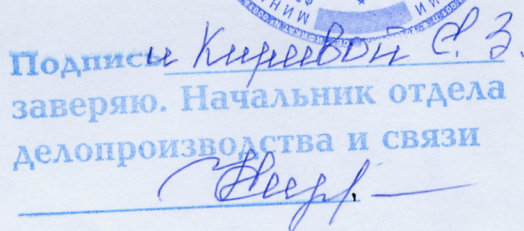 Подписьи Киреевой С. З.
заверяю. Начальник отдела
делопроизводства и связи